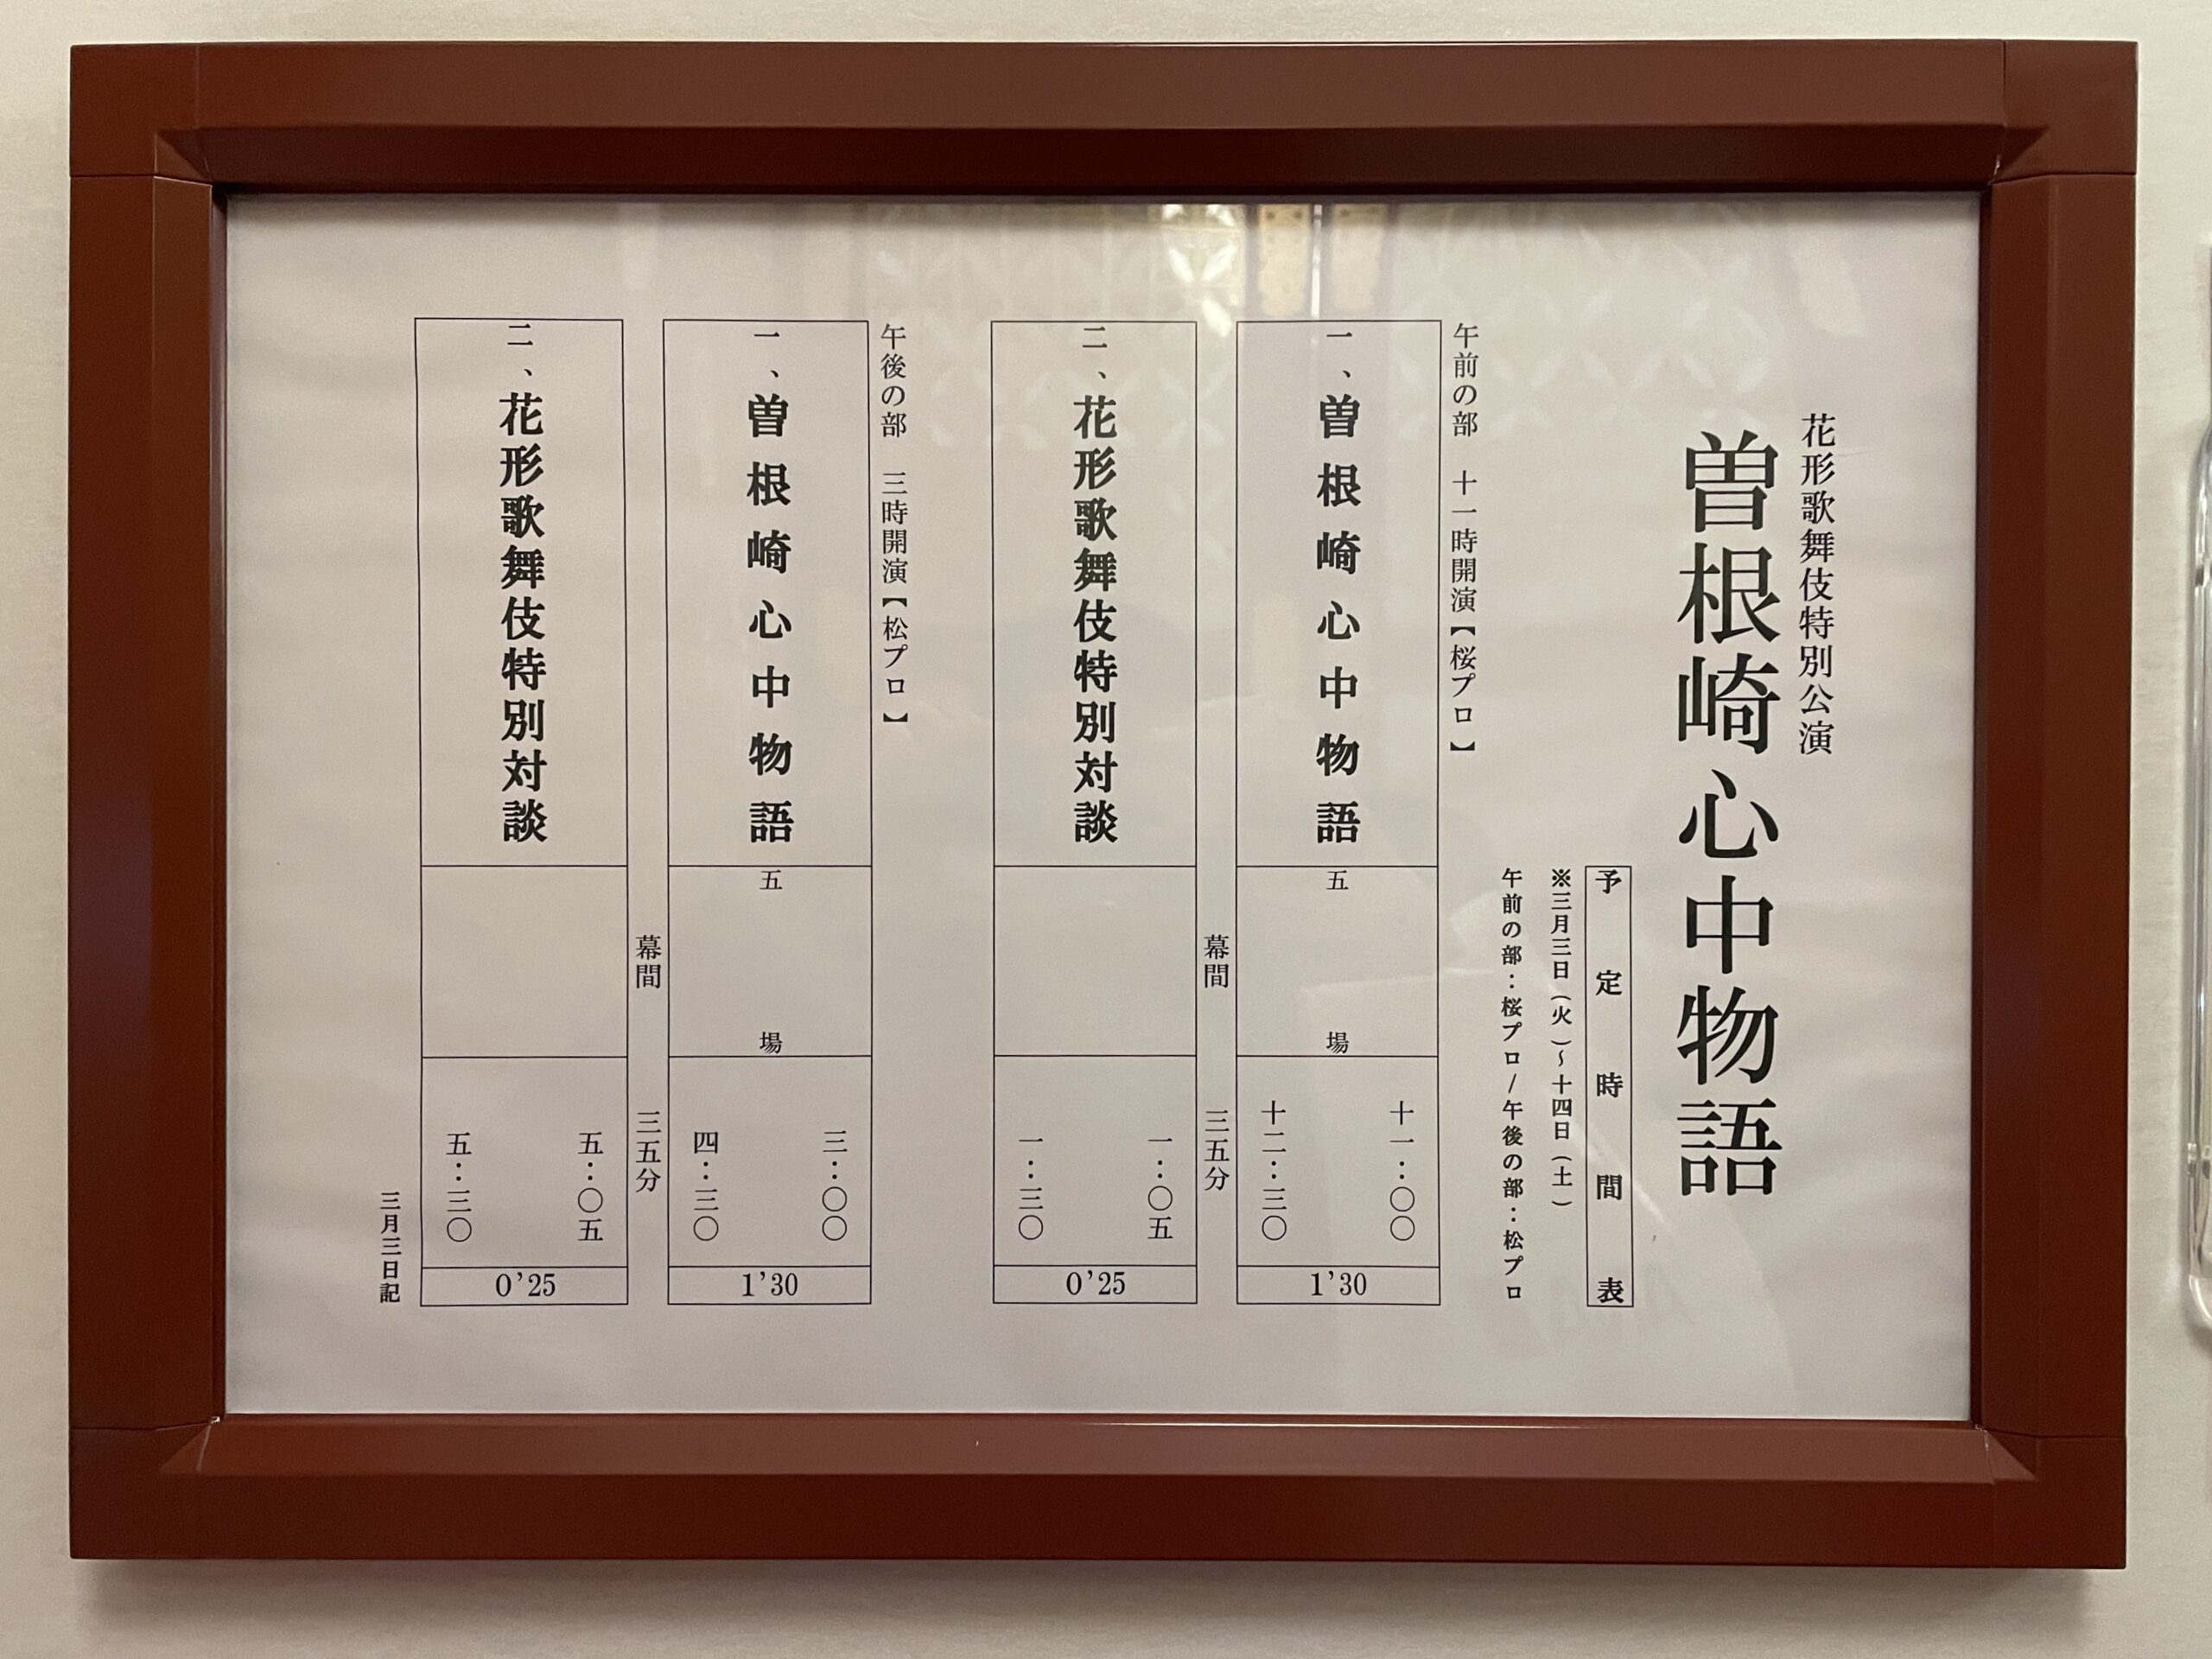 花形歌舞伎特別公演
曽根崎心中物語
予定時間表
※三月三日（火）～十四日（土）
午前の部：桜プロ/午後の部：松プロ
午前の部　十一時開演【桜プロ】
一、曽根崎心中物語
五場
十一：〇〇
十二：三〇
1’30
幕間　三五分
二、花形歌舞伎特別対談
一：〇五
一：三〇
0’25
午後の部　三時開演【松プロ】
一、曽根崎心中物語
五場
三：〇〇
四：三〇
1’30
幕間　三五分
二、花形歌舞伎特別対談
五：〇五
五：三〇
0’25
三月三日記